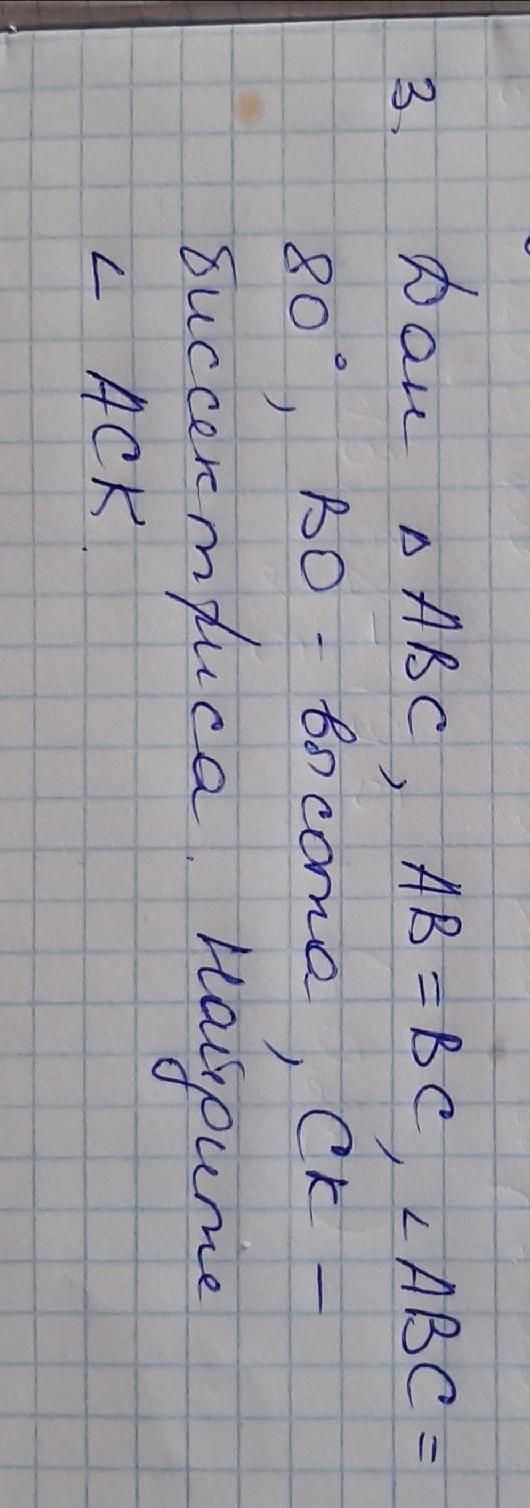 3. Дан △ABC, AB=BC, ∠ABC=
80°, BO - высота, CK -
биссектриса. Найдите
∠ ACK.